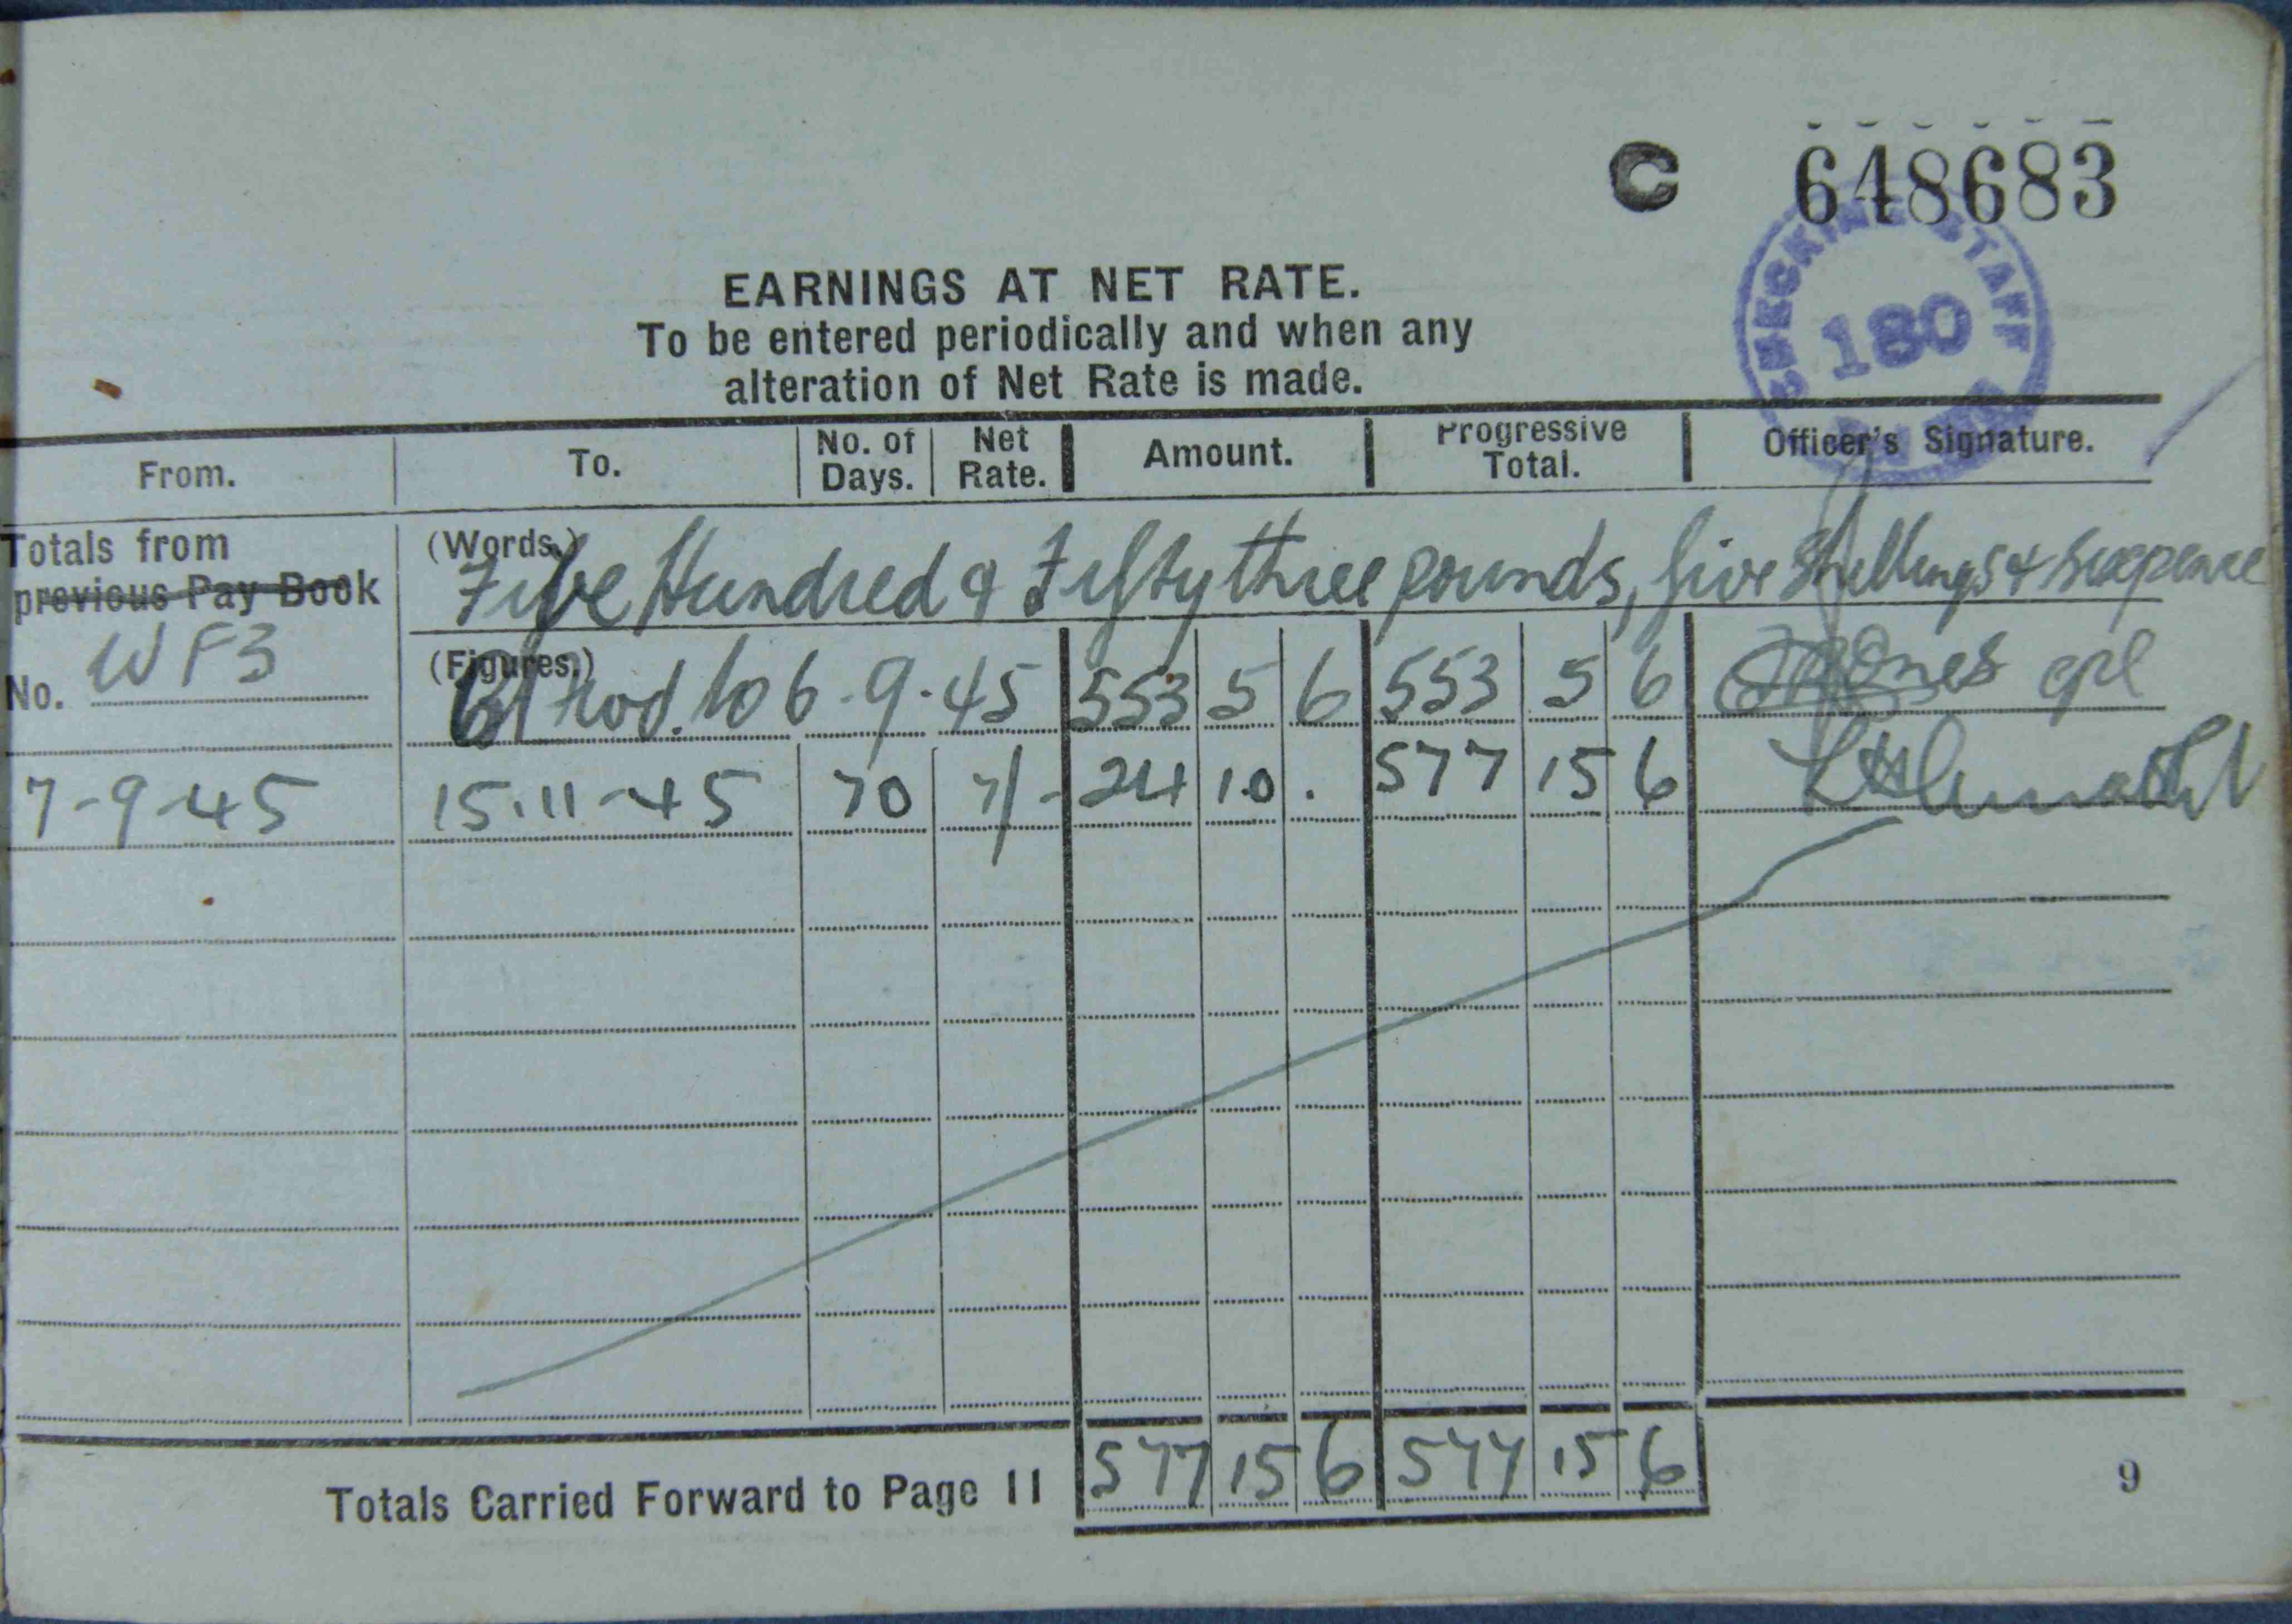 C 648683
CHECKING STAFF
180
EARNINGS AT NET RATE.
To be entered periodically and when any
alteration of Net Rate is made.
From. To. No. of Days. Net Rate. Amount. Progressive Total. Officer's Signature.
Totals from
previous Pay Book
(Words.) Five Hundred & Fifty three pounds, five Shillings & sixpence
No. WF3
(Figures.) to 6-9-45 553 5 6 553 5 6 Jones cpl
7-9-45 15-11-45 70 7/- 24 10 . 577 15 6
Totals Carried Forward to Page 11 577 15 6 577 15 6
9